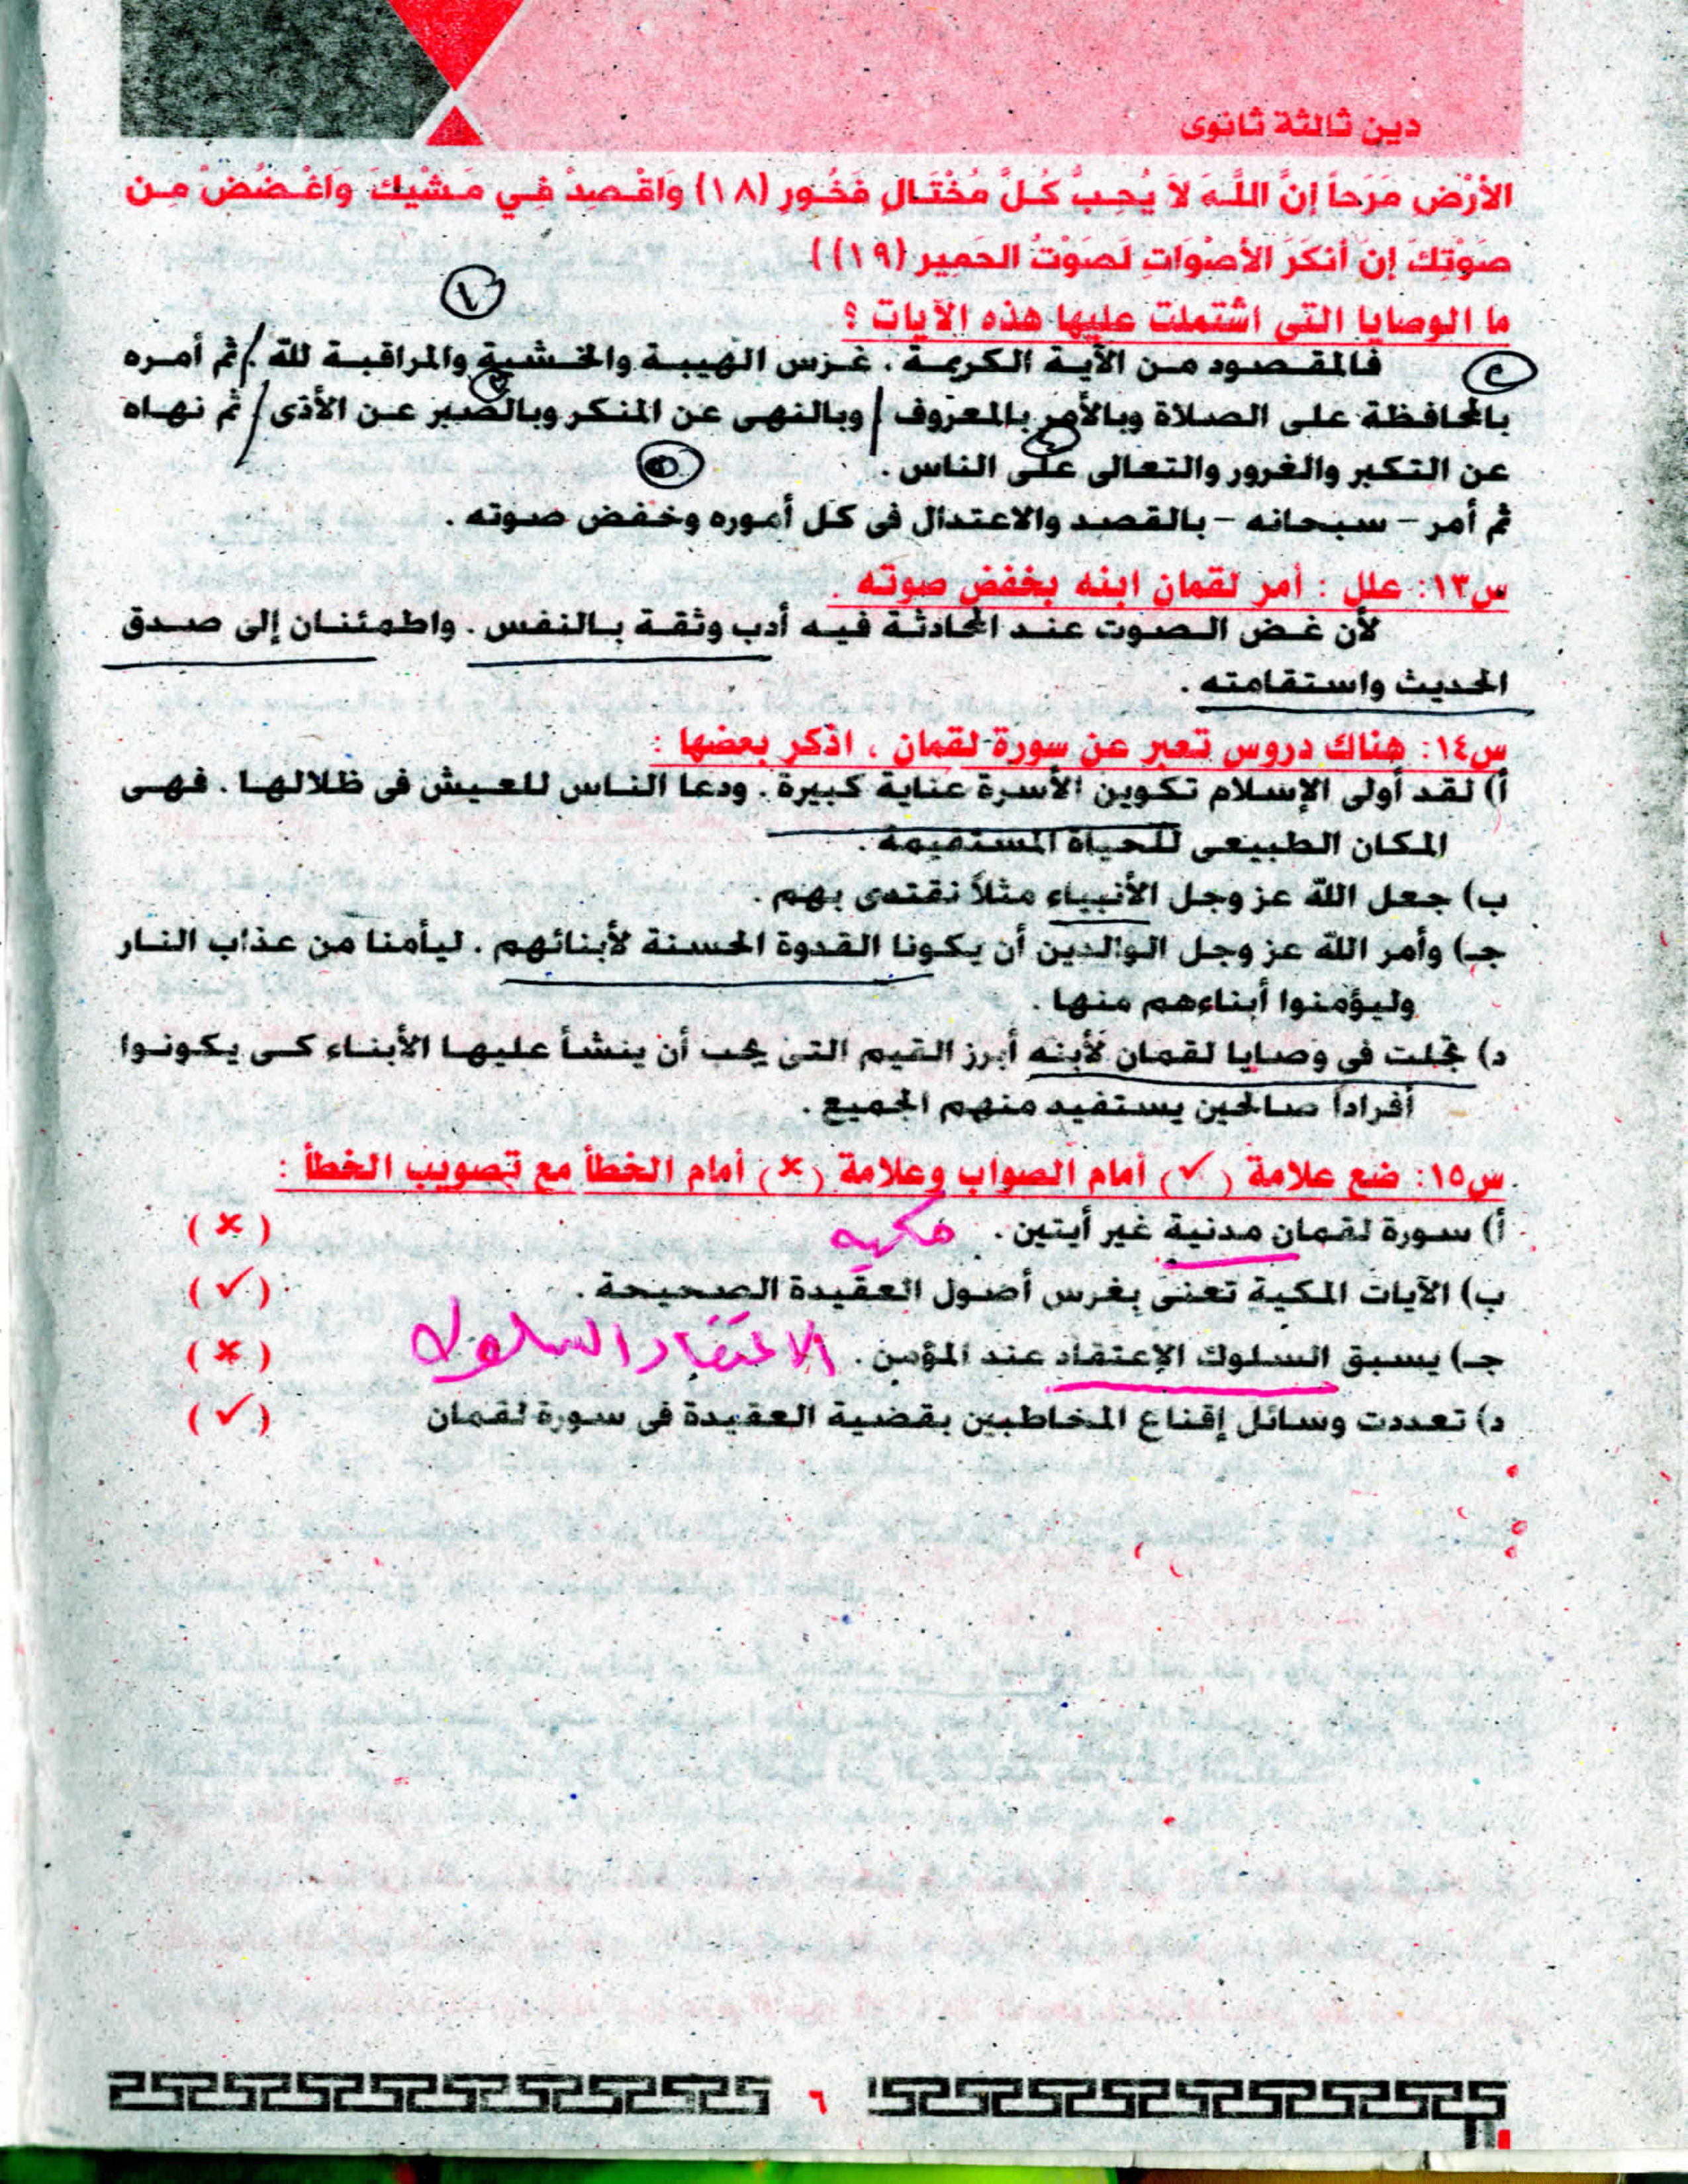 دين ثالثة ثانوى
الأرْض مَرَحاً إنَّ اللَّهَ لاَ يُحِبُّ كُلَّ مُخْتَالٍ فَخُورٍ (١٨) وَاقْصِدْ فِي مَشْيِكَ وَاغْضُضْ مِن
صَوْتِكَ إنَ أنكَرَ الأصْوَاتِ لَصَوْتُ الحَمِير (١٩))
١
ما الوصايا التى اشتملت عليها هذه الآيات ؟
فالمقصود من الآية الكريمة ، غرس الهيبة والخشية والمراقبة لله . ثم أمره
٢
٣
بالمحافظة على الصلاة وبالأمر بالمعروف وبالنهى عن المنكر وبالصبر عن الأذى ثم نهاه
٤
عن التكبر والغرور والتعالى على الناس .
٥
ثم أمر – سبحانه – بالقصد والاعتدال فى كل أموره وخفض صوته .
س١٣: علل : أمر لقمان ابنه بخفض صوته .
لأن غض الصوت عند المحادثة فيه أدب وثقة بالنفس . واطمئنان إلى صدق
الحديث واستقامته .
س١٤: هناك دروس تعبر عن سورة لقمان ، اذكر بعضها :
أ) لقد أولى الإسلام تكوين الأسرة عناية كبيرة . ودعا الناس للعيش فى ظلالها . فهى
المكان الطبيعى للحياة المستقيمة .
ب) جعل الله عز وجل الأنبياء مثلاً نقتدى بهم .
جـ) وأمر الله عز وجل الوالدين أن يكونا القدوة الحسنة لأبنائهم . ليأمنا من عذاب النار
وليؤمنوا أبناءهم منها .
د) تجلت فى وصايا لقمان لأبنه أبرز القيم التى يجب أن ينشأ عليها الأبناء كى يكونوا
أفراداً صالحين يستفيد منهم الجميع .
س١٥: ضع علامة (✓) أمام الصواب وعلامة (×) أمام الخطأ مع تصويب الخطأ :
أ) سورة لقمان مدنية غير أيتين . مكيه (×)
ب) الآيات المكية تعنى بغرس أصول العقيدة الصحيحة . (✓)
جـ) يسبق السلوك الإعتقاد عند المؤمن . الاعتقاد السلوك (×)
د) تعددت وسائل إقناع المخاطبين بقضية العقيدة فى سورة لقمان (✓)
٦